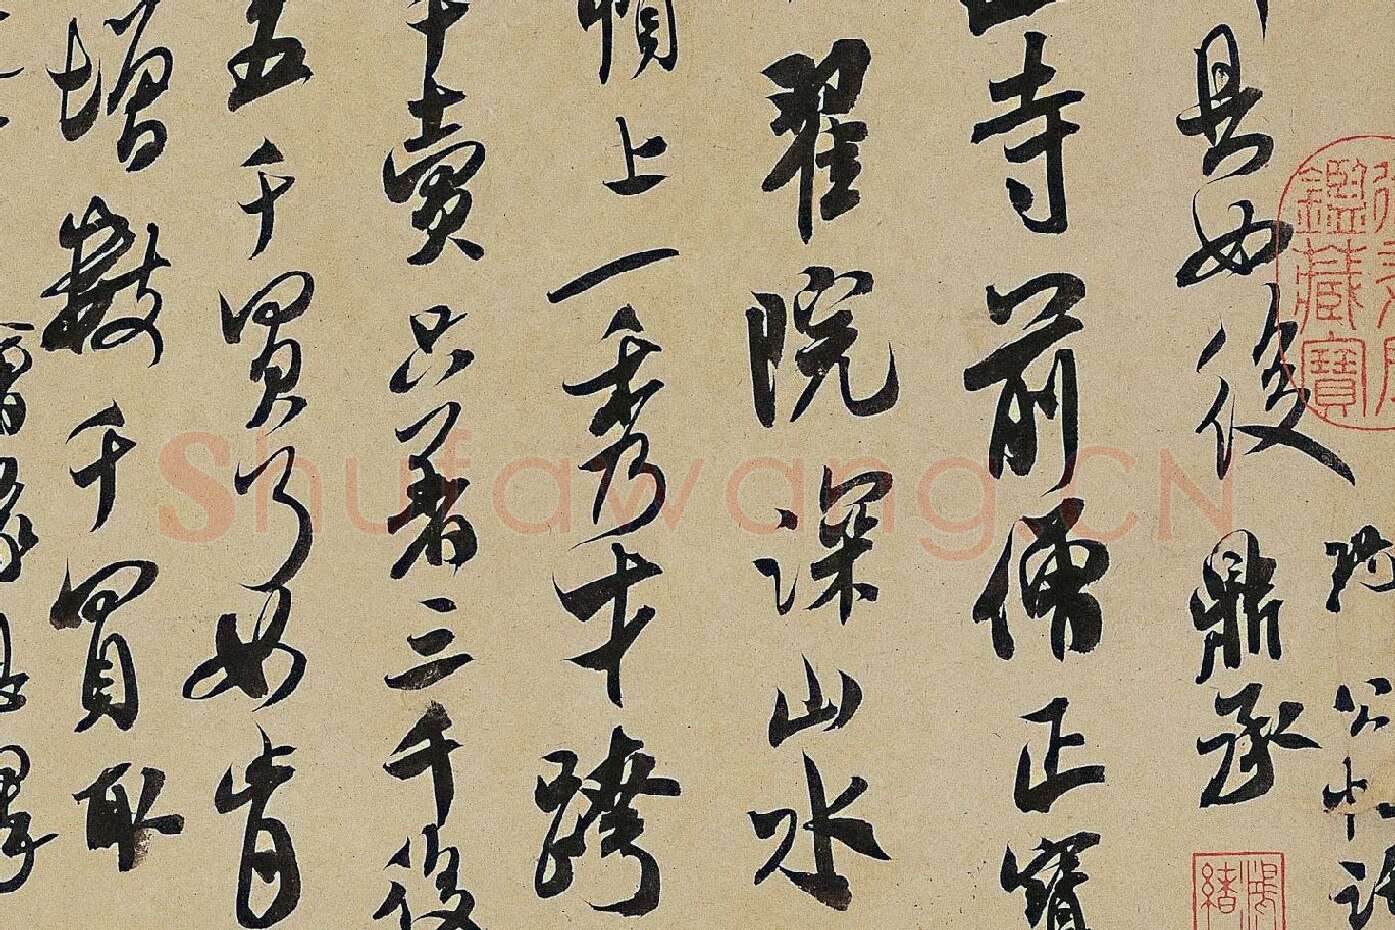 具如後 鼎承
寺前僧正寶
翟院深山水
上一秀才跨
賣只著三千後
五千買如肯
增數千買取
鑑藏寶
Shufawang.CN